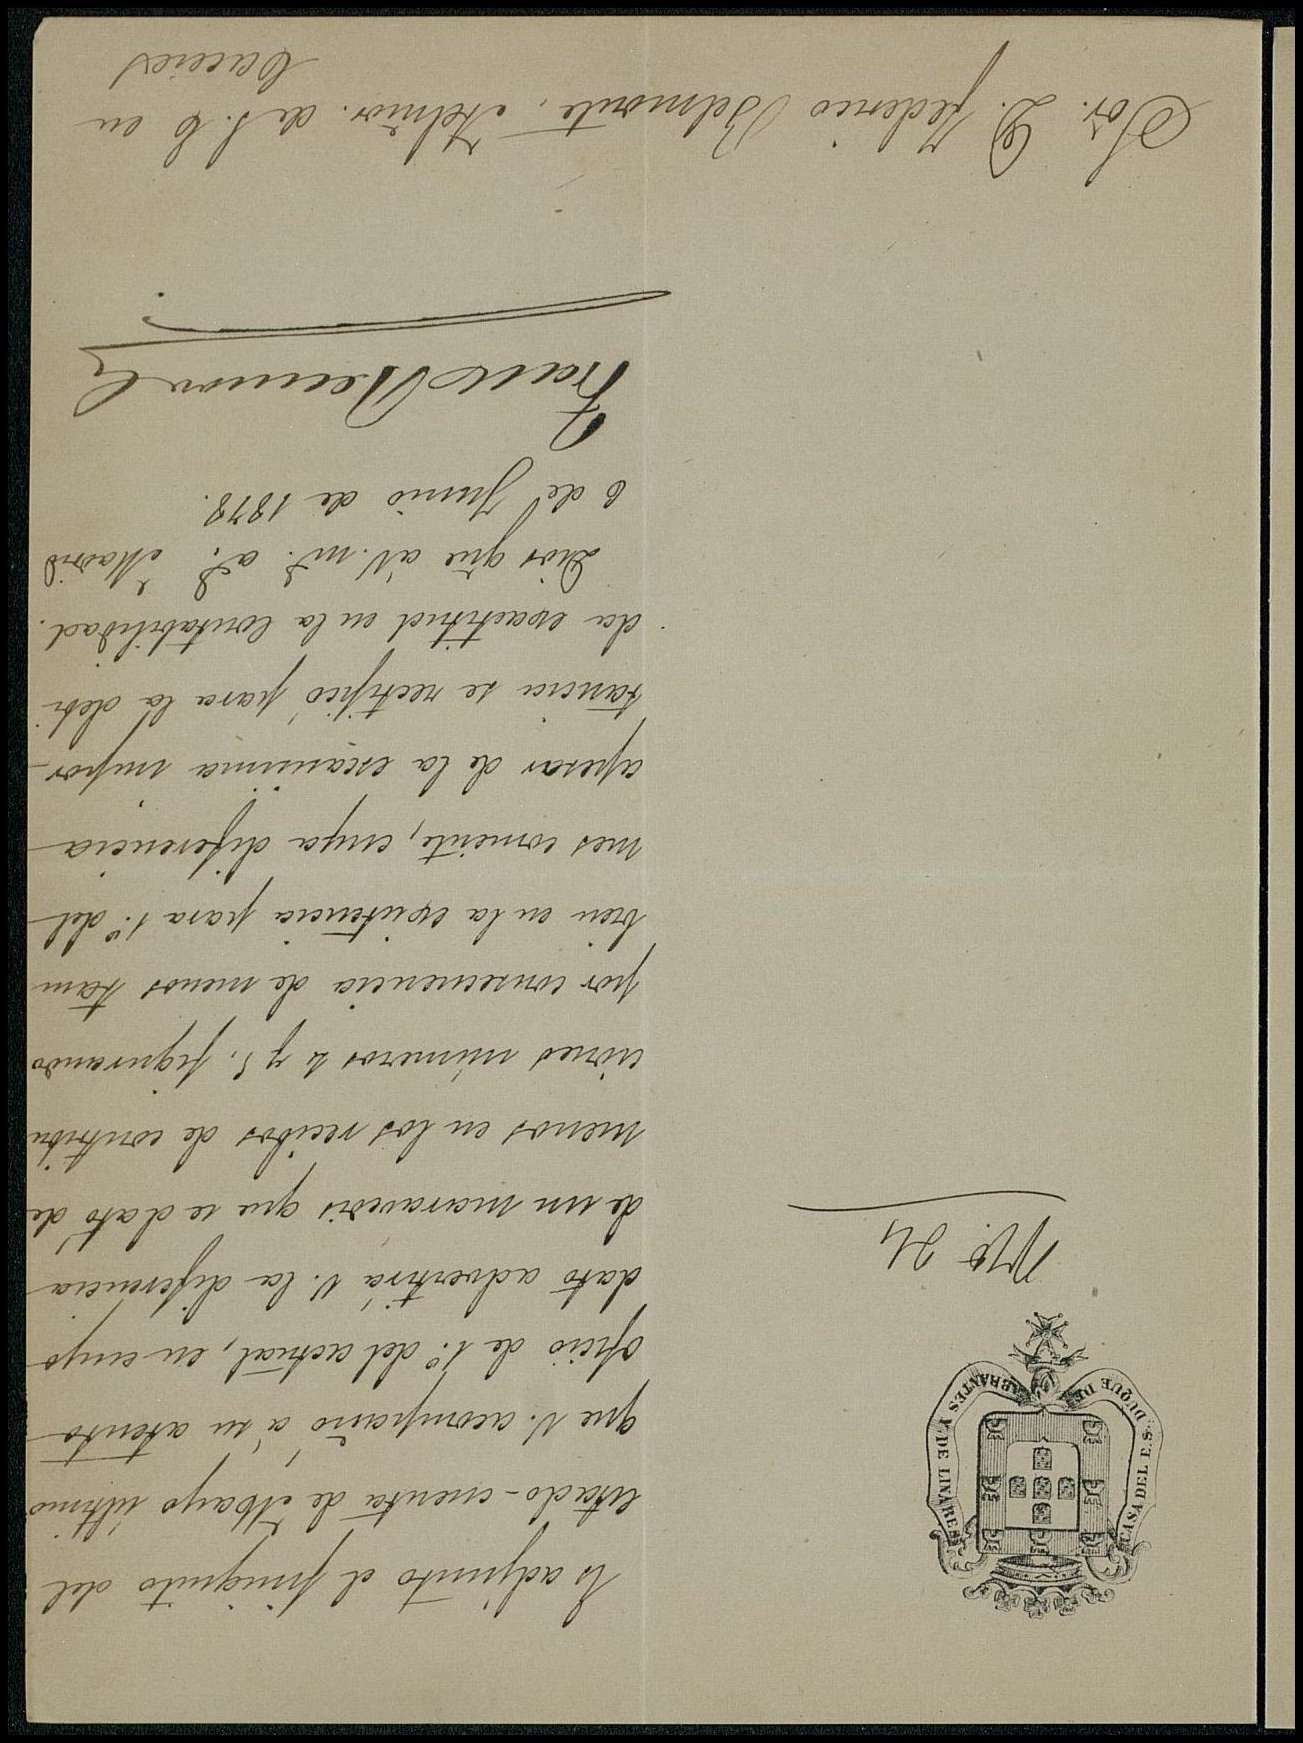 CASA DEL E.S. DUQUE DE ABRANTES Y DE LINARES
Nº 24
Es adjunto el finiquito del
estado-cuenta de Mayo último
que V. acompañó á su atento
oficio de 1º del actual, en cuyo
dato advertirá V. la diferencia
de un maravedis que se dató de
menos en los recibos de contribu
ciones números 4 y 5, figurando
por consecuencia de menos tam
bien en la existencia para 1º del
mes corriente, cuya diferencia
apesar de la escasisima impor-
tancia se rectificó para la debi
da exactitud en la contabilidad.
Dios gue á V. ms. as. Madrid
6 de Junio de 1878.
Sor. D. Federico Belmonte, Admor. de S. E en
Caceres